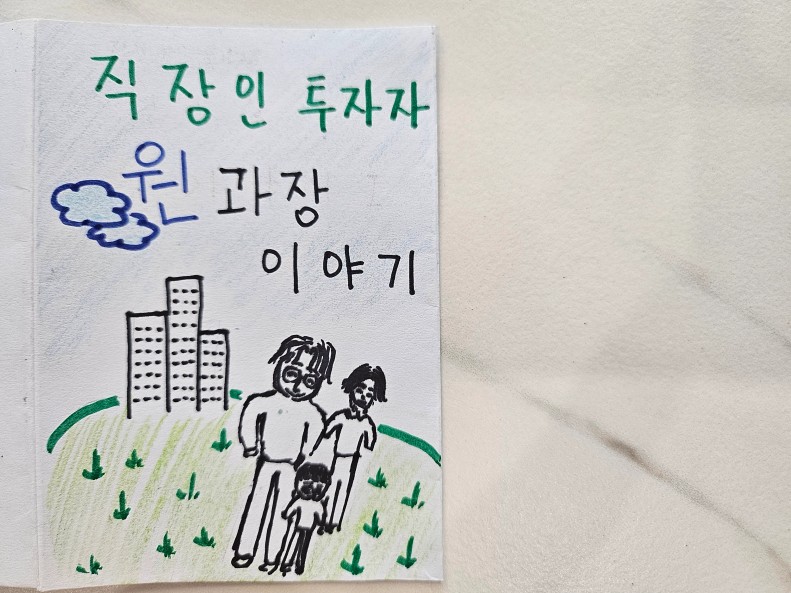 직장인 투자자
원 과장
이야기